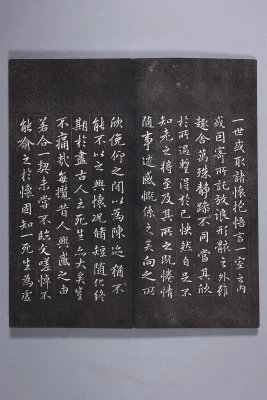 一世或取諸懷抱悟言一室之內
或因寄所託放浪形骸之外雖
趣舍萬殊靜躁不同當其欣
於所遇暫得於己怏然自足不
知老之將至及其所之既惓情
隨事遷感慨係之矣向之所
欣俛仰之間以為陳迹猶不
能不以之興懷況脩短隨化終
期於盡古人云死生亦大矣豈
不痛哉每攬昔人興感之由
若合一契未嘗不臨文嗟悼不
能喻之於懷固知一死生為虛